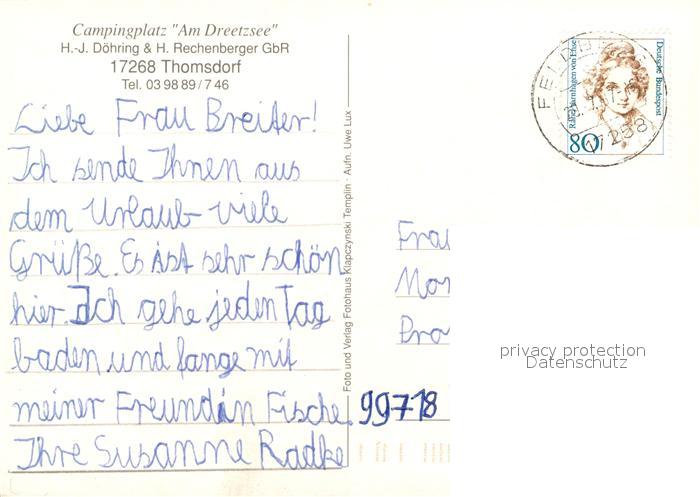 Campingplatz "Am Dreetzsee"
H.-J. Döhring & H. Rechenberger GbR
17268 Thomsdorf
Tel. 03 98 89 / 7 46
Liebe Frau Breiter!
Ich sende Ihnen aus
dem Urlaub viele
Grüße. Es ist sehr schön
hier. Ich gehe jeden Tag
baden und fange mit
meiner Freundin Fische.
Ihre Susanne Radke
Foto und Verlag Fotohaus Klapczynski Templin · Aufn. Uwe Lux
Deutsche Bundespost
Rahel Varnhagen von Ense
80
17258
Frau
99718
privacy protection
Datenschutz